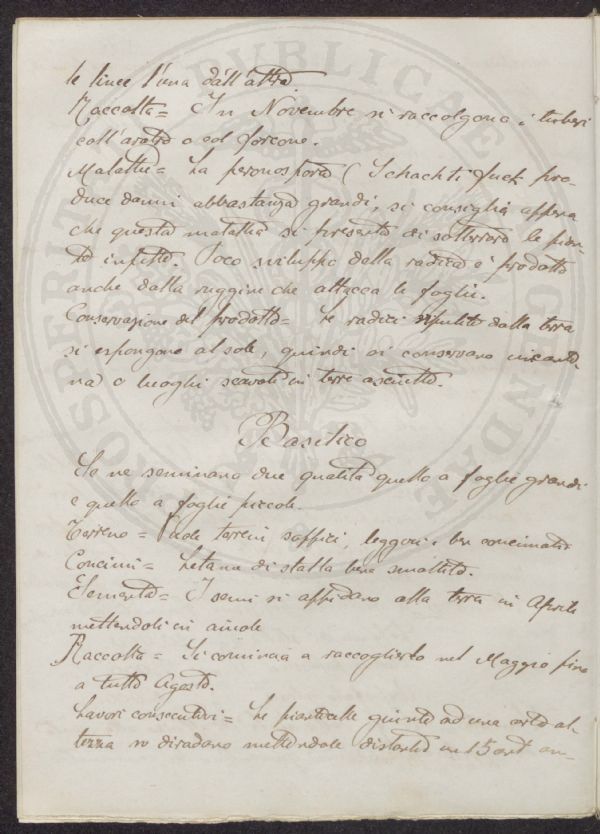 le linee l'una dall'altra.
Raccolta = In Novembre si raccolgono i tuberi
coll'aratro o col forcone.
Malattie = La peronospora (Schachti fuck pro-
duce danni abbastanza grandi, si consiglia appena
che questa malattia si presenta di sotterrare le pian-
te infette. Poco sviluppo della radice è prodotto
anche dalla ruggine che attacca le foglie.
Conservazione del prodotto = Le radici ripulite dalla terra
si espongono al sole, quindi si conservano in canti-
na o luoghi scavati in terre asciutte.
Basilico
Se ne seminano due qualità quello a foglie grandi
e quello a foglie piccole.
Terreno = Vuole terreni soffici, leggeri e ben concimati
Concimi = Letame di stalla bene smaltito.
Sementa = I semi si affidano alla terra in Aprile
mettendoli in aiuole
Raccolta = Si comincia a raccoglierlo nel Maggio fino
a tutto Agosto.
Lavori consecutivi = Le pianticelle giunte ad una certa al-
tezza si diradano mettendole distanti un 15 cent an-
PROSPERITATI PUBLICAE AUGENDAE